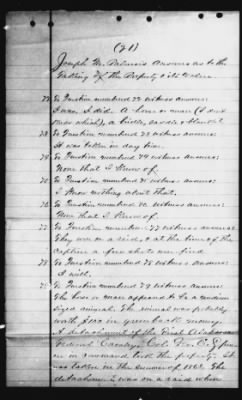 (21)
Joseph M. Answers as to the
Taking of the Property & its Value.
72 To Question numbered 72 witness answers:
I was, I did. A horse or mare (I dont
know which), a bridle, saddle & blanket.
73 To Question numbered 73 witness answers:
It was taken in day time.
74 To Question numbered 74 witness answers:
None that I Know of.
75 To Question numbered 75 witness answers:
I Know nothing about that.
76 To Question numbered 76 witness answers:
None that I Know of.
77 To Question number 77 witness answers:
They were on a raid, & at the time of the
capture a few shots were fired.
78 To Question numbered 78 witness answers:
I will.
79 To Question numbered 79 witness answers:
The horse or mare appeared to be a medium
sized animal. The animal was probably
worth $ in greenback money.
A detachment of the First Alabama
Federal Cavalry, Col. Geo. E. Spencer
in command took the property. It
was taken in the summer of The
detachment was on a raid when